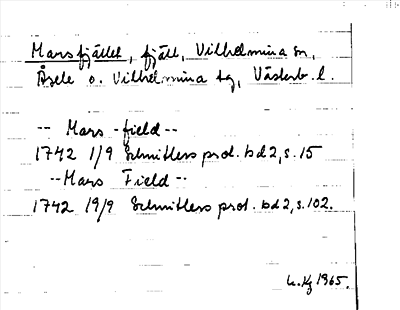 Marsfjället, fjäll, Vilhelmina sn,
Åsele o. Vilhelmina tg, Västerb. l.
-- Mars-field --
1742 1/9 Schnitlers prot. bd 2, s. 15
-- Mars Field --
1742 19/9 Schnitlers prot. bd 2, s. 102.
1965.